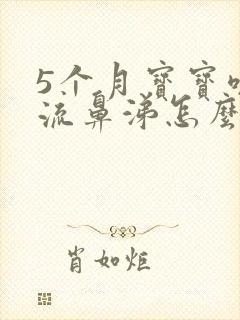 5个月寶寶
流鼻涕怎麽
肖如炬